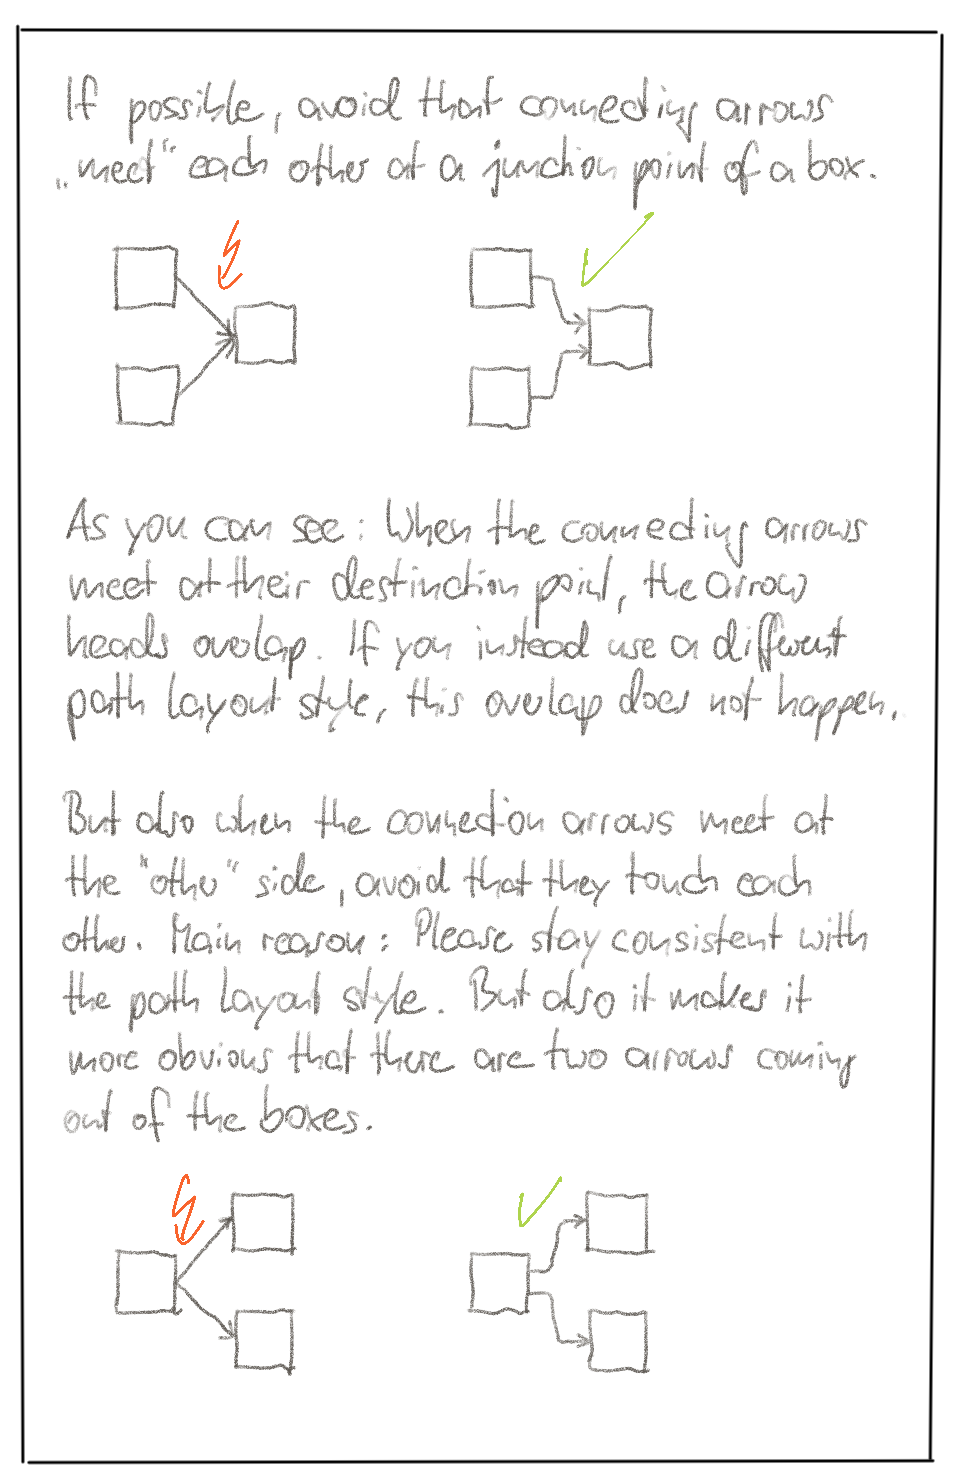 If possible, avoid that connecting arrows
„meet“ each other at a junction point of a box.
As you can see: When the connecting arrows
meet at their destinction point, the arrow
heads overlap. If you instead use a different
path layout style, this overlap does not happen.
But also when the connection arrows meet at
the "other" side, avoid that they touch each
other. Main reason: Please stay consistent with
the path layout style. But also it makes it
more obvious that there are two arrows coming
out of the boxes.